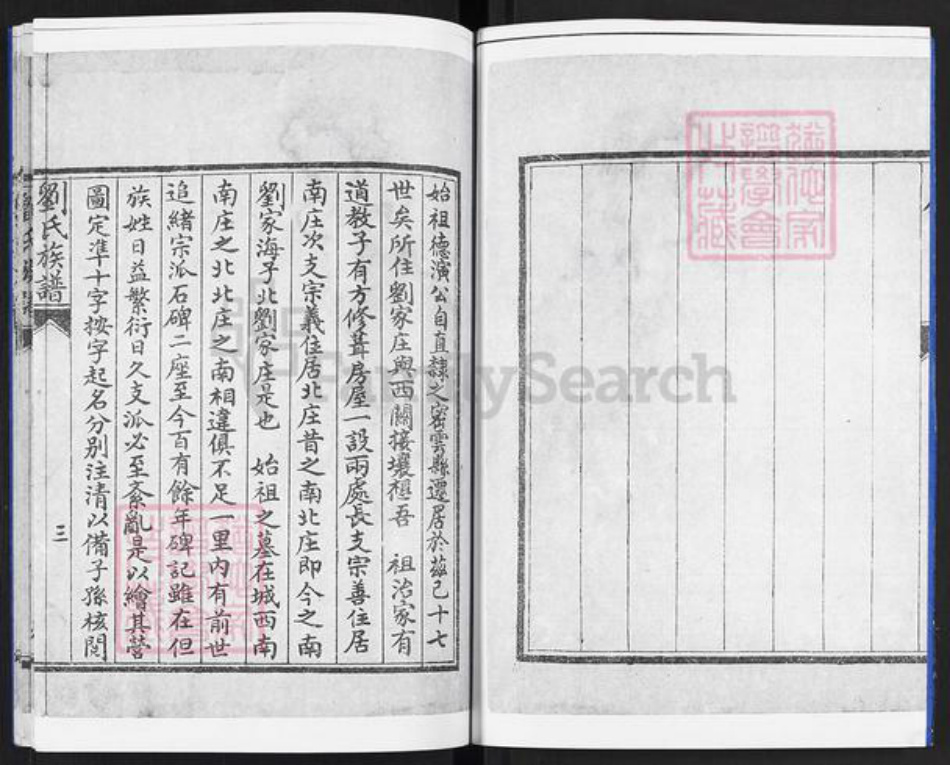 始祖德演公自直隸之密雲縣遷居於茲已十七
世矣所住劉家庄與西關接壤想吾 祖治家有
道教子有方修葺房屋一設兩處長支宗善住居
南庄次支宗義住居北庄昔之南北庄即今之南
劉家海子北劉家庄是也 始祖之墓在城西南
南庄之北北庄之南相違俱不足一里內有前世
追緒宗派石碑二座至今百有餘年碑記雖在但
族姓日益繁衍日久支派必至紊亂是以繪其營
圖定準十字按字起名分別注清以備子孫核閱
劉氏族譜
三
FamilySearch